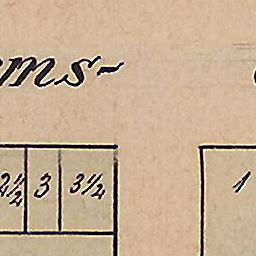 ms-
2½ 3 3¼ 1